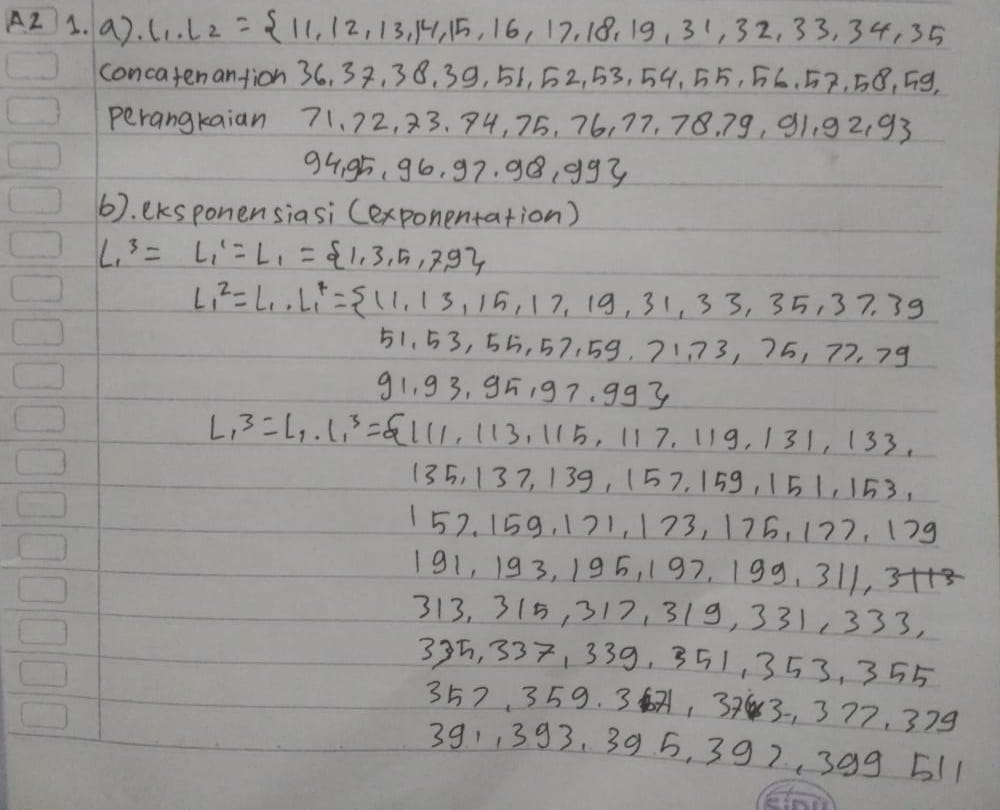 A2 1. a). L₁.L₂ = { 11, 12, 13, 14, 15, 16, 17, 18, 19, 31, 32, 33, 34, 35
concatenantion 36, 37, 38, 39, 51, 52, 53, 54, 55, 56, 57, 58, 59,
perangkaian 71, 72, 73, 74, 75, 76, 77, 78, 79, 91, 92, 93
94, 95, 96, 97, 98, 99 }
b). eksponensiasi (exponentation)
L₁³ = L₁¹ = L₁ = { 1, 3, 5, 7 9 }
L₁² = L₁ . L₁¹ = { 11, 13, 15, 17, 19, 31, 33, 35, 37, 39
51, 53, 55, 57, 59, 71, 73, 75, 77, 79
91, 93, 95, 97, 99 }
L₁³ = L₁ . L₁³ = { 111, 113, 115, 117, 119, 131, 133,
135, 137, 139, 157, 159, 151, 153,
157, 159, 171, 173, 175, 177, 179
191, 193, 195, 197, 199, 311, 3113
313, 315, 317, 319, 331, 333,
335, 337, 339, 351, 353, 355
357, 359, 371, 373, 377, 379
391, 393, 395, 397, 399 511
SIDU